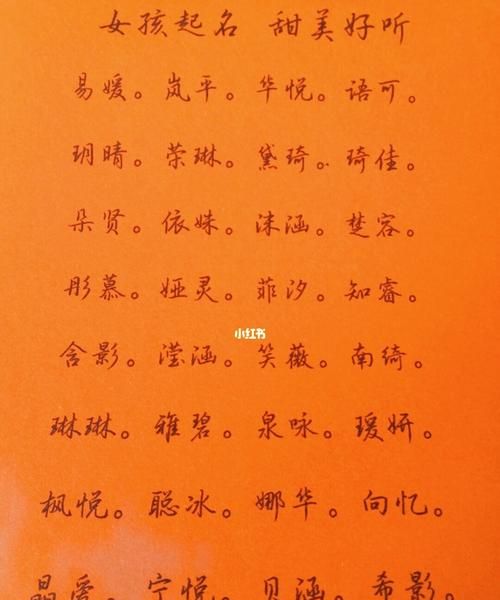 女孩起名 甜美好听
易媛。岚平。华悦。语可。
玥晴。荣琳。黛琦。琦佳。
朵贤。依姝。沫涵。楚容。
彤慕。娅灵。菲汐。知睿。
小红书
含影。滢涵。笑薇。南绮。
琳琳。雅碧。泉咏。瑗妍。
枫悦。聪冰。娜华。向忆。
晶爱。宁悦。贝涵。希影。